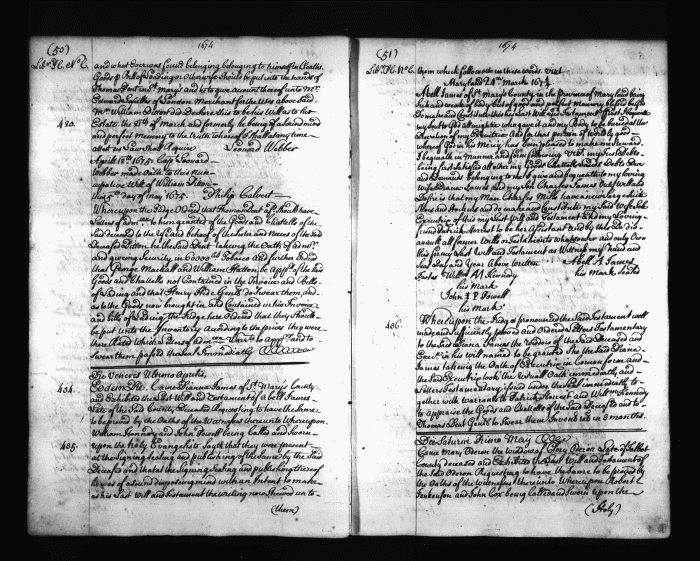 1674
(50)
Liber H.C. No. C.
and what Ever was found belonging belonging to himself in Cloaths
Goods & Bill of Loading or Otherwise Should be put into the hands of
Thomas Dent in St. Marys and to give account thereof unto Mr.
Edward of London Merchant for the Uses above said
Mr. William Ditton did Declare this to be his Will as to his
Estate the of March and formerly he being of a Sound
430.
and perfect Memory to the truth whereof I Shall at any time
attest as I am Shall Require Leonard Webber
April 18th 1675. Capt Leonard
Webber made Oath to this Nun-
cupative Will of William Ditton
this 5th day of May 1675 Philip Calvert
Whereupon the Judge Ordered that Thomas Dent afd. should have
Letters of Admcon to him granted of the Goods and Chattells of the
said deceased to the Use and behoof of the Sister and Neices of the said
Deceased Ditton, he the said Dent taking the Oath of Admr.
and giving Security in 60000 lb Tobacco and further Ordered
that George Mackall and William Hatton be Apprs. of the said
Goods and Chattells not Contained in the Invoice and Bills
of Lading and that Henry Hyde Gentl. do Swear them, and
as to the Goods now brought in and Contained in his Invoice
and bills of Lading the Judge here Ordered that they should
be put into the Inventory According to the prices they were
there Rated Which Letters of Admcon Warrt. to Appr. and to
Swear them passed that day Immediatly
Die Veneris Ultimo Aprilis,
434.
Eodem Die. Came Dianna James of St. Marys County
and Exhibited the Last Will and Testament of Abell James
Late of the said County, Deceased Requesting to have the same
to be proved by the Oaths of the Witnesses thereunto Whereupon
William Kennedy and John Powell being Called and Sworn
435.
upon the Holy Evangelists Sayth that they were present
at the Signing Sealing and publishing of the same by the said
Deceased and that at the Signing Sealing and publishing thereof
he was of a sound disposing mind with an Intent to make
as his Last Will and Testament the writing now Shewed un to-
(them)
1674
(51)
Liber H.C. No. C.
them which followeth in these words. Vizt.
Maryland 24th March 1674
Abell James of St. Marys County in the province of Maryland being
Sick and weake of body but of good and perfect Memory blessed be God
Do make and Constitute this his Last Will and Testament first I bequeath
my Soul to God Almighty who gave it and my Body to be buried at the
Discretion of my Executrix And for that portion of Worldly goods
whereof God in his Mercy has been pleased to make me Steward,
I bequeath in Manner and form following Vizt. my just Debts
being first Satisfied all other my Goods Chattells Lands Debts Due
and Demands belonging to me I give and bequeath to my loving
wife Dianna James And my Son Charles James Only My Will and
Desire is that my Son Charles James have a new
Horse and and do make and Constitute my said Wife Sole
Executrix of this my Last Will and Testament and my Loving
friend Patrick Forrest to be her Assistant and by this I do dis-
annull all former Wills or Testaments whatsoever and only Own
this for my Last Will and Testament as Witness my Hand and
Seal Day and Year Above Written Abell A James
Testes Willm. M Kennedy his Mark Sealed
his Mark
John I P Powell
his Mark
436.
Whereupon the Judge pronounced the said Testament well
made and Sufficiently proved and Ordered Letters Testamentary
to the said Diana James the Widdow of the said Deceased and
Executrix in his will named to be granted She the said Diana
James taking the Oath of Executrix in Comon forme and
the said Executrix took the Usual Oath immediatly and
Letters Testamentary issued under the Seal immediatly to-
gether with Warrant to Patrick Forrest and Willm. Kennedy
to Appraise the Goods and Chattells of the said Deceased and to
Thomas Dent Gentl. to Swear them Invendred in 3 months.
Die Saturni Primo May
Came Mary Oderon the Widdow of Oderon Late of Talbot
County deceased and Exhibited the Last Will and Testament of
the said Oderon Requesting to have the same to be proved by
the Oaths of the Witnesses thereunto Whereupon Robert
Jenkeson and John Cox being Called and Sworn upon the
(Holy)